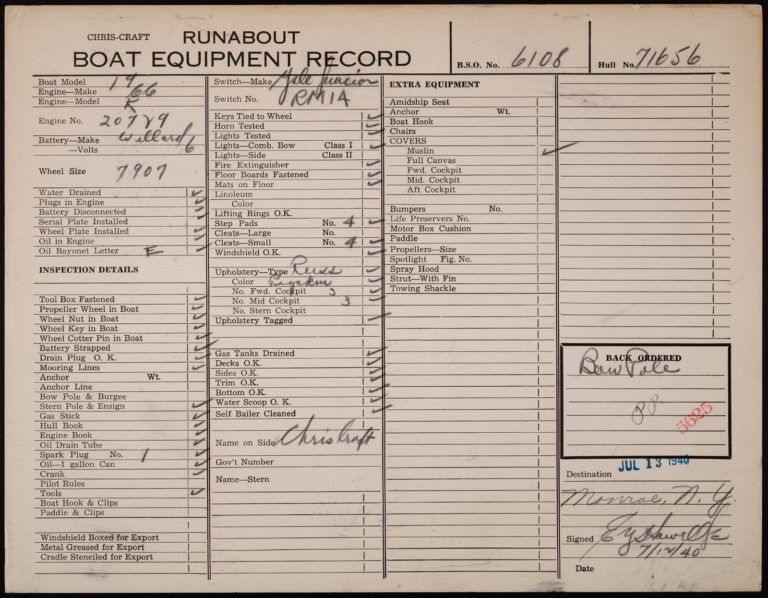 CHRIS-CRAFT RUNABOUT
BOAT EQUIPMENT RECORD
B.S.O. No. 6108
Hull No. 71656
Boat Model 19
Engine—Make 66
Engine—Model K
Engine No. 20789
Battery—Make Willard
—Volts 6
Wheel Size 7907
Water Drained
Plugs in Engine
Battery Disconnected
Serial Plate Installed
Wheel Plate Installed
Oil in Engine
Oil Bayonet Letter E
INSPECTION DETAILS
Tool Box Fastened
Propeller Wheel in Boat
Wheel Nut in Boat
Wheel Key in Boat
Wheel Cotter Pin in Boat
Battery Strapped
Drain Plug O. K.
Mooring Lines
Anchor Wt.
Anchor Line
Bow Pole & Burgee
Stern Pole & Ensign
Gas Stick
Hull Book
Engine Book
Oil Drain Tube
Spark Plug No. 1
Oil—1 gallon Can
Crank
Pilot Rules
Tools
Boat Hook & Clips
Paddle & Clips
Windshield Boxed for Export
Metal Greased for Export
Cradle Stenciled for Export
Switch—Make Yale Junior
Switch No. RM1A
Keys Tied to Wheel
Horn Tested
Lights Tested
Lights—Comb. Bow Class I
Lights—Side Class II
Fire Extinguisher
Floor Boards Fastened
Mats on Floor
Linoleum
Color
Lifting Rings O.K.
Step Pads No. 4
Cleats—Large No.
Cleats—Small No. 4
Windshield O.K.
Upholstery—Type Russ
Color Pigskin
No. Fwd. Cockpit 3
No. Mid Cockpit 3
No. Stern Cockpit
Upholstery Tagged
Gas Tanks Drained
Decks O.K.
Sides O.K.
Trim O.K.
Bottom O.K.
Water Scoop O. K.
Self Bailer Cleaned
Name on Side Chris Craft
Gov't Number
Name—Stern
EXTRA EQUIPMENT
Amidship Seat
Anchor Wt.
Boat Hook
Chairs
COVERS
Muslin
Full Canvas
Fwd. Cockpit
Mid. Cockpit
Aft Cockpit
Bumpers No.
Life Preservers No.
Motor Box Cushion
Paddle
Propellers—Size
Spotlight Fig. No.
Spray Hood
Strut—With Fin
Towing Shackle
BACK ORDERED
Bow Pole
P.P.
5625
JUL 13 1940
Destination
Monroe, N.Y.
Signed
7/12/40
Date